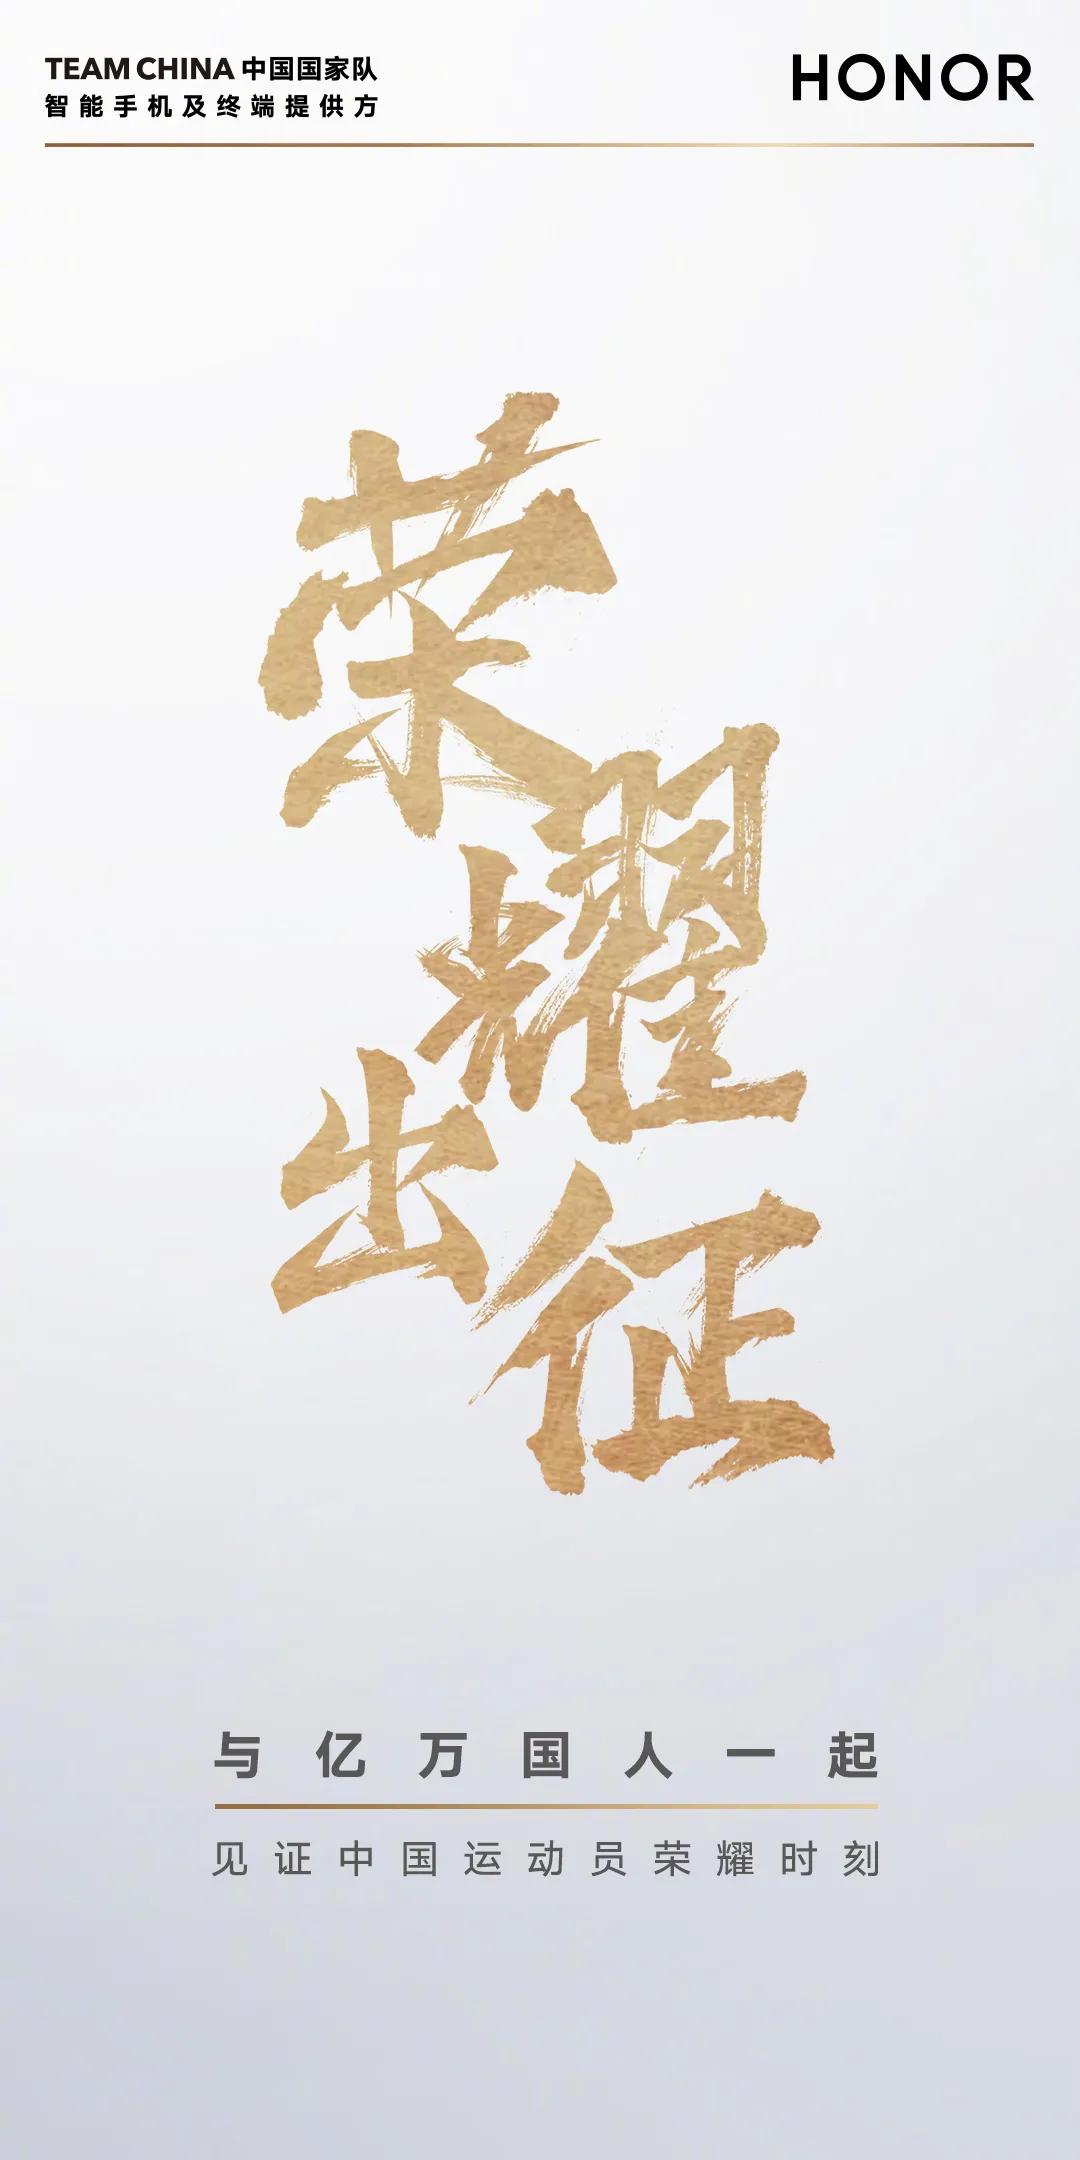 TEAM CHINA 中国国家队
智能手机及终端提供方
HONOR
荣耀
出征
与亿万国人一起
见证中国运动员荣耀时刻